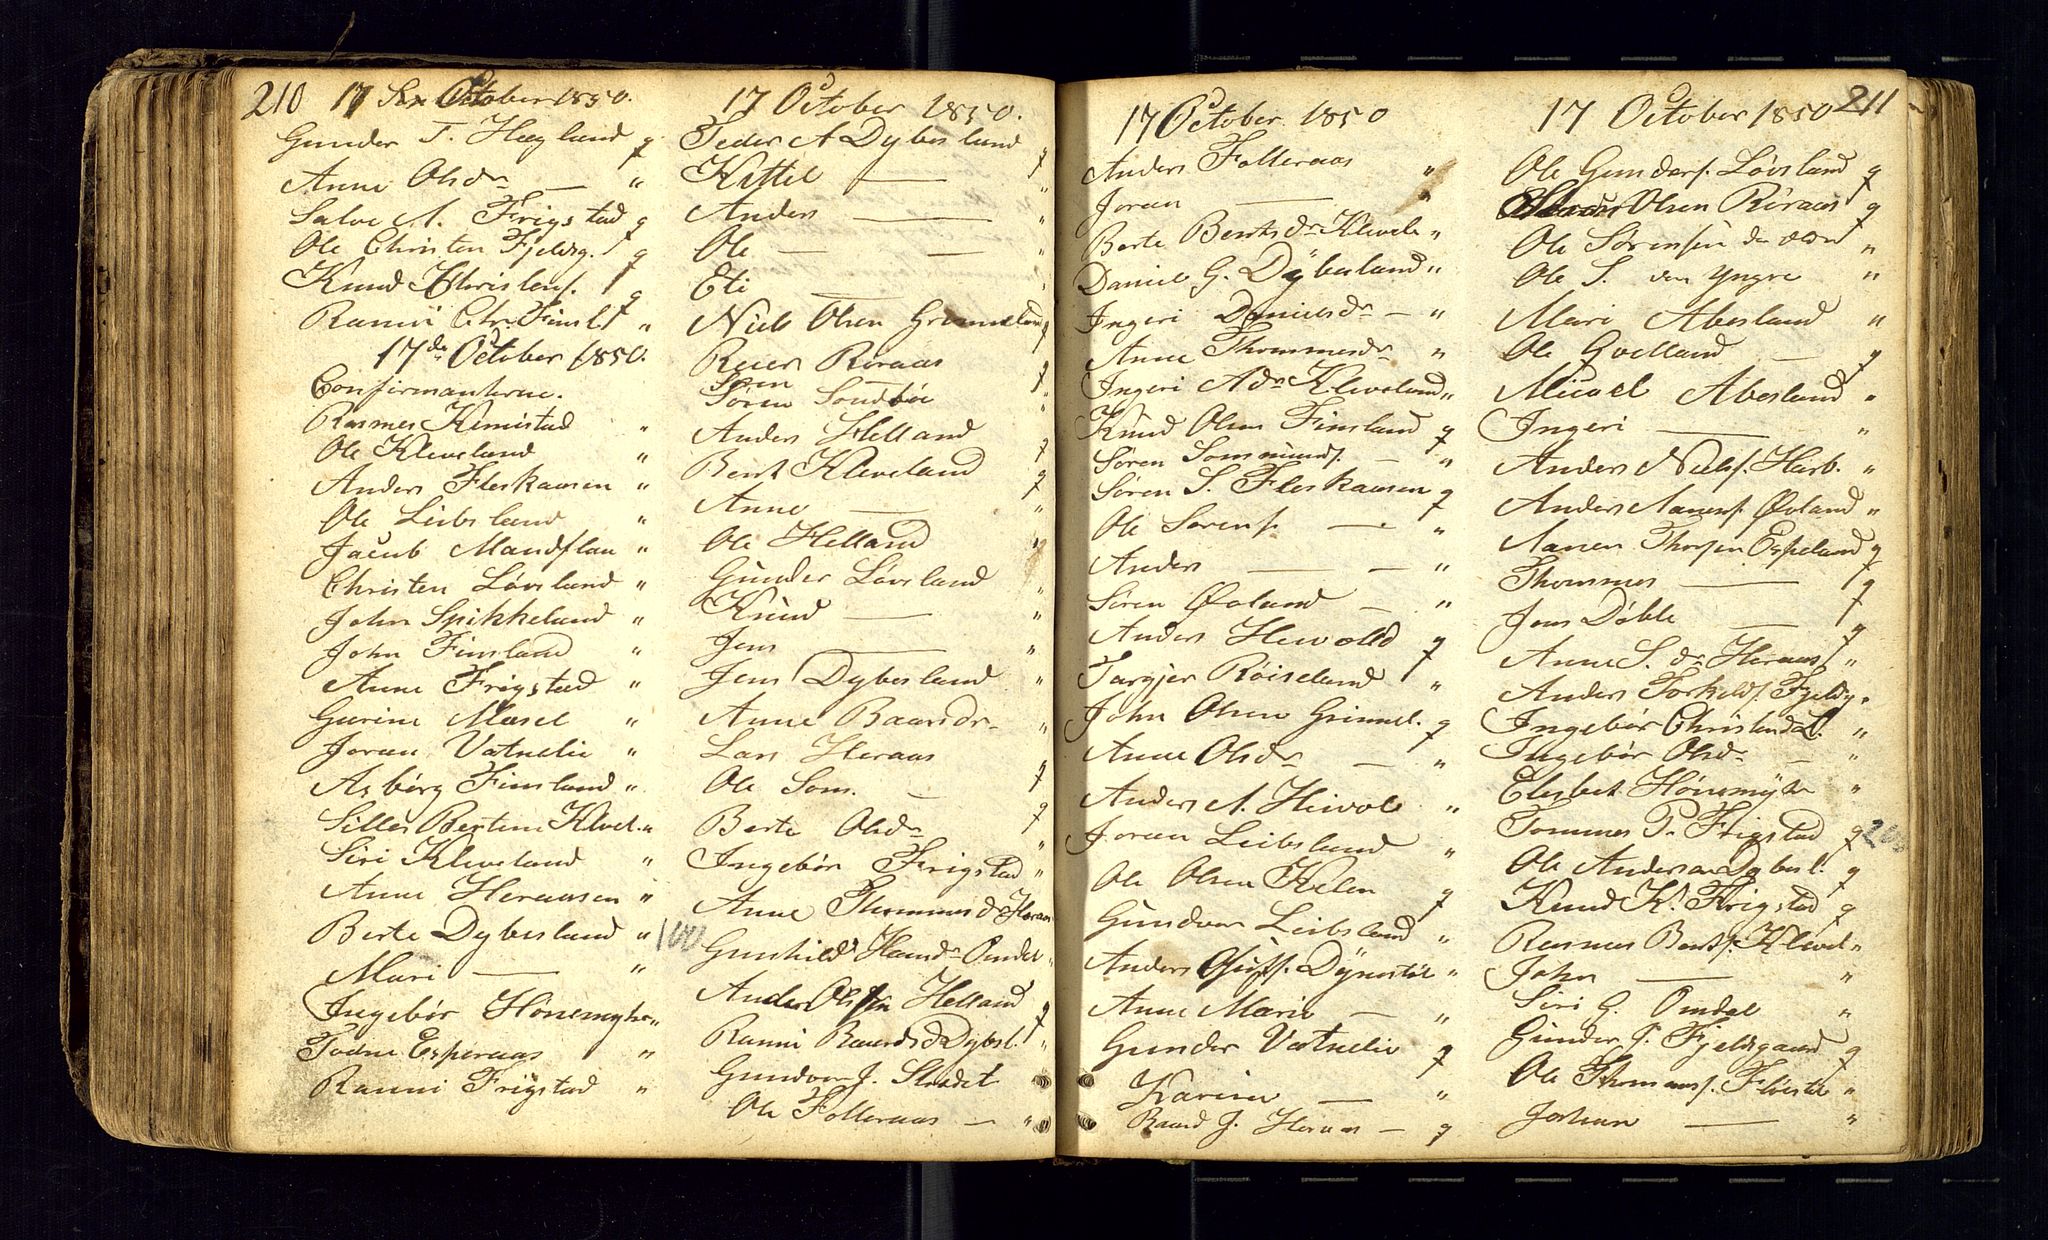 210 17 October 1850.
Gunder T. Høyland g
Anne Olsdr — "
Salve A. Frigstad g
Ole Christen Fjeldsg. g
Knud Christens. g
Ranni Chr. Finsl. "
17de October 1850.
Confirmanterne.
Rasmes Kimistad "
Ole Kleveland "
Anders Fleskaasen "
Ole Leibsland "
Jacob Mandflaa "
Christen Løvsland "
John Spikkeland "
John Finsland "
Anne Frigstad "
Gurine Mosel "
Joran Vatnelie "
Asbørg Finsland "
Silles Bertine Klevel. "
Siri Kleveland "
Anne Heraasen "
Berte Dybesland " 100
Mari — "
Ingebør Hønemyhr "
Todne Esperaas "
Ranni Frigstad "
17 October 1850.
Peder A Dybesland g
Kittel — "
Anders — "
Ole — — "
Eli — "
Niels Olsen Grimeland g
Reier Røraas g
Søren Sondbøe "
Anders Helland g
Bent Kleveland g
Anne — "
Ole Helland "
Gunder Løvsland "
Knud — "
Jens — "
Jens Dybesland "
Anne Baardsdr. "
Lars Heraas g
Ole Som. — g
Berte Olsdr "
Ingebør Frigstad "
Anne Thommesdr Heraas
Gunhild Hansdr Omdal "
Anders Olsen Helland g
Ranni Baardsd Dybsl. "
Gundvor J. Stradet "
Ole Folleraas — "
17 October 1850
Anders Folleraas "
Joran — "
Berte Bentsdr Klevela "
Daniel G. Dybesland "
Ingeri Danielsdr — "
Anne Thommesdr "
Ingeri Adr Kleveland "
Knud Olsen Finsland g
Søren Sommunds. — "
Søren S. Fleskaasen g
Ole Sørens. — "
Anders — — "
Søren Øvland — "
Anders Hewolld g
Targjer Røiseland "
John Olsen Grimel. g
Anne Olsdr — "
Anders A. Heivole "
Joran Leibsland "
Ole Olsen Kelen g
Gundvor Leibsland "
Anders Dynestøl "
Anne Marie — "
Gunder Vatnelie g
Karine — "
Baard J. Heraas — g
17 October 1850 211
Ole Gunders. Løvsland g
Olsen Røraas g
Ole Sørensen den ældre "
Ole S. den yngre "
Mari Abesland "
Ole Qvelland — g
Micael Abesland "
Ingeri — "
Anders Niels. Harb. "
Anders Aanens. Øvland "
Aanen Thorsen Espeland g
Thommes — g
Jens Døble — g
Anne S. dr Heraas "
Anders Torkelds. Fjeldg. "
Ingebør Christensd L. "
Ingebør Olsd. — "
Elesbet Hønemyhr "
Tommes P. Frigstad g 200
Ole Andersen Dybesl. g
Knud K. Frigstad g
Rasmus Bents. Klevel "
John — "
Siri G. Omdal "
Gunder J. Fjeldsgaard g
Ole Thomass. Fløistøl "
Johan — "